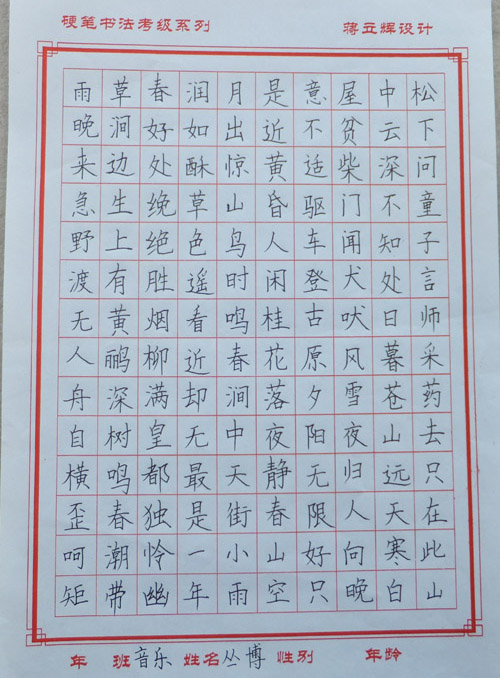 硬笔书法考级系列 蒋立辉设计
松下问童子言师采药去只在此山
中云深不知处日暮苍山远天寒白
屋贫柴门闻犬吠风雪夜归人向晚
意不适驱车登古原夕阳无限好只
是近黄昏人闲桂花落夜静春山空
月出惊山鸟时鸣春涧中天街小雨
润如酥草色遥看近却无最是一年
春好处绝胜烟柳满皇都独怜幽
草涧边生上有黄鹂深树鸣春潮带
雨晚来急野渡无人舟自横歪呵矩
年 班音乐 姓名丛博 性别 年龄